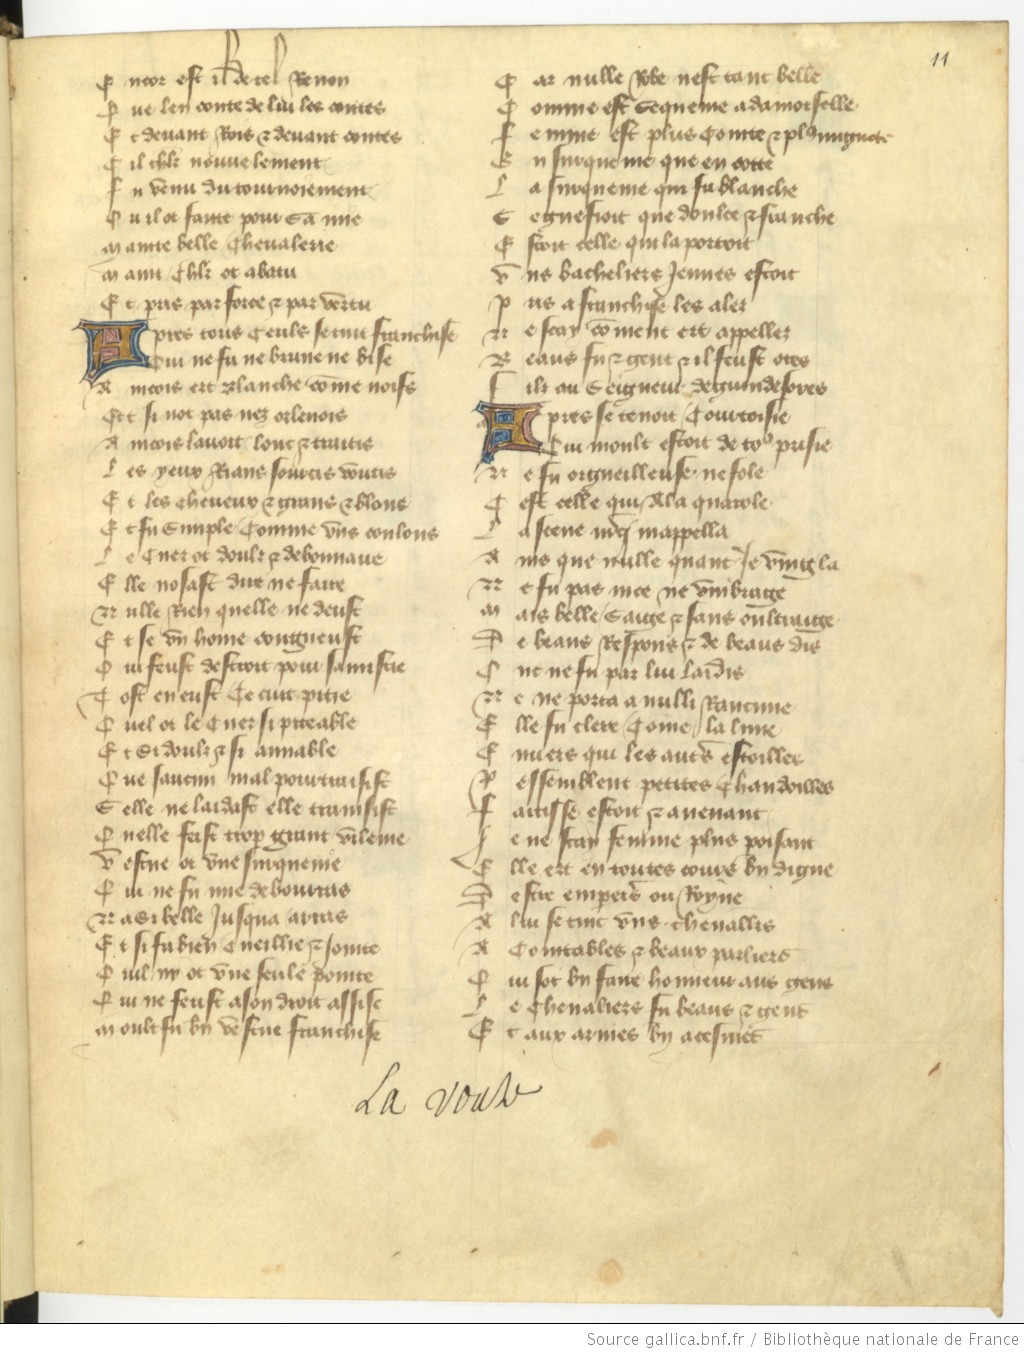 11
E ncor est il de tel Renon
Q ue len conte de lui les contes
E t devant Rois & devant contes
C il chlr nouvelement
F u venu du tournoiement
O u il ot faite pour sa mie
M ainte belle Chevalerie
M aint Chlr ot abatu
E t pris par force & par vertu
A pres tous Ceuls se tint franchise
Qui ne fu ne brune ne bise
A incois ert blanche come noifs
Et si not pas nez orlenois
A incois lavoit lonc & traitis
L es yeux Rians sourcis voutis
E t les Cheveux & grans & blons
E t fu Simple Comme uns coulons
L e Cuer ot doulz & debonnaire
E lle nosast dire ne faire
N ulle Rien quelle ne deust
E t se un home congneust
Q ui feust destroit pour samistie
T ost en eust Ce cuit pitie
Q uel ot le Cuer si piteable
E t Si doulz & si amable
Q ue saucun mal pour traisist
S elle ne laidast elle transist
Q uelle feist trop grant vilenie
V estue ot une surquenie
Q ui ne fu mie de bourras
N a si belle Jusqua arras
E t si fu bien Cueillie & Jointe
Q uil ny ot une seule pointe
Q ui ne feust a son droit assise
M oult fu bn vestue franchise
C ar nulle Robe nest tant belle
C omme est Sequenie a damoiselle
F emme est plus Cointe & plus mignote
E n surquenie que en cotte
L a surquenie qui fu blanche
S egnefioit que doulce & franche
E stoit celle qui la portoit
V ns bacheliers Jeunes estoit
P ris a franchise les alez
N e scay coment ert appellez
B eaus fu & gent & il feust ores
F ilz au Seigneur de guindesores
A pres se tenoit Courtoisie
Qui moult estoit de tous prisie
N e fu orgueilleuse ne fole
C est celle qui A la quarole
L a seue mappella
A ins que nulle quant Je ving la
N e fu pas nice ne umbrage
M ais belle Saige & sans oultrauge
D e beaus Respons & de beaus dis
O nc ne fu par lui laidis
N e ne porta a nulli Rancune
E lle fu clere Come la lune
E nvers qui les autres estoilles
R essemblent petites Chandoilles
F aitisse estoit & avenant
J e ne scay femme plus poisant
E lle ert en toutes cours bn digne
D estre emperis ou Royne
A lui se tint uns chevalliers
A Cointables & beaux parliers
Q ui sot bn faire honneur aus gens
L e Chevaliers fu beaus & gent
E t aux armes bn acesmes
La voute
Source gallica.bnf.fr / Bibliothèque nationale de France